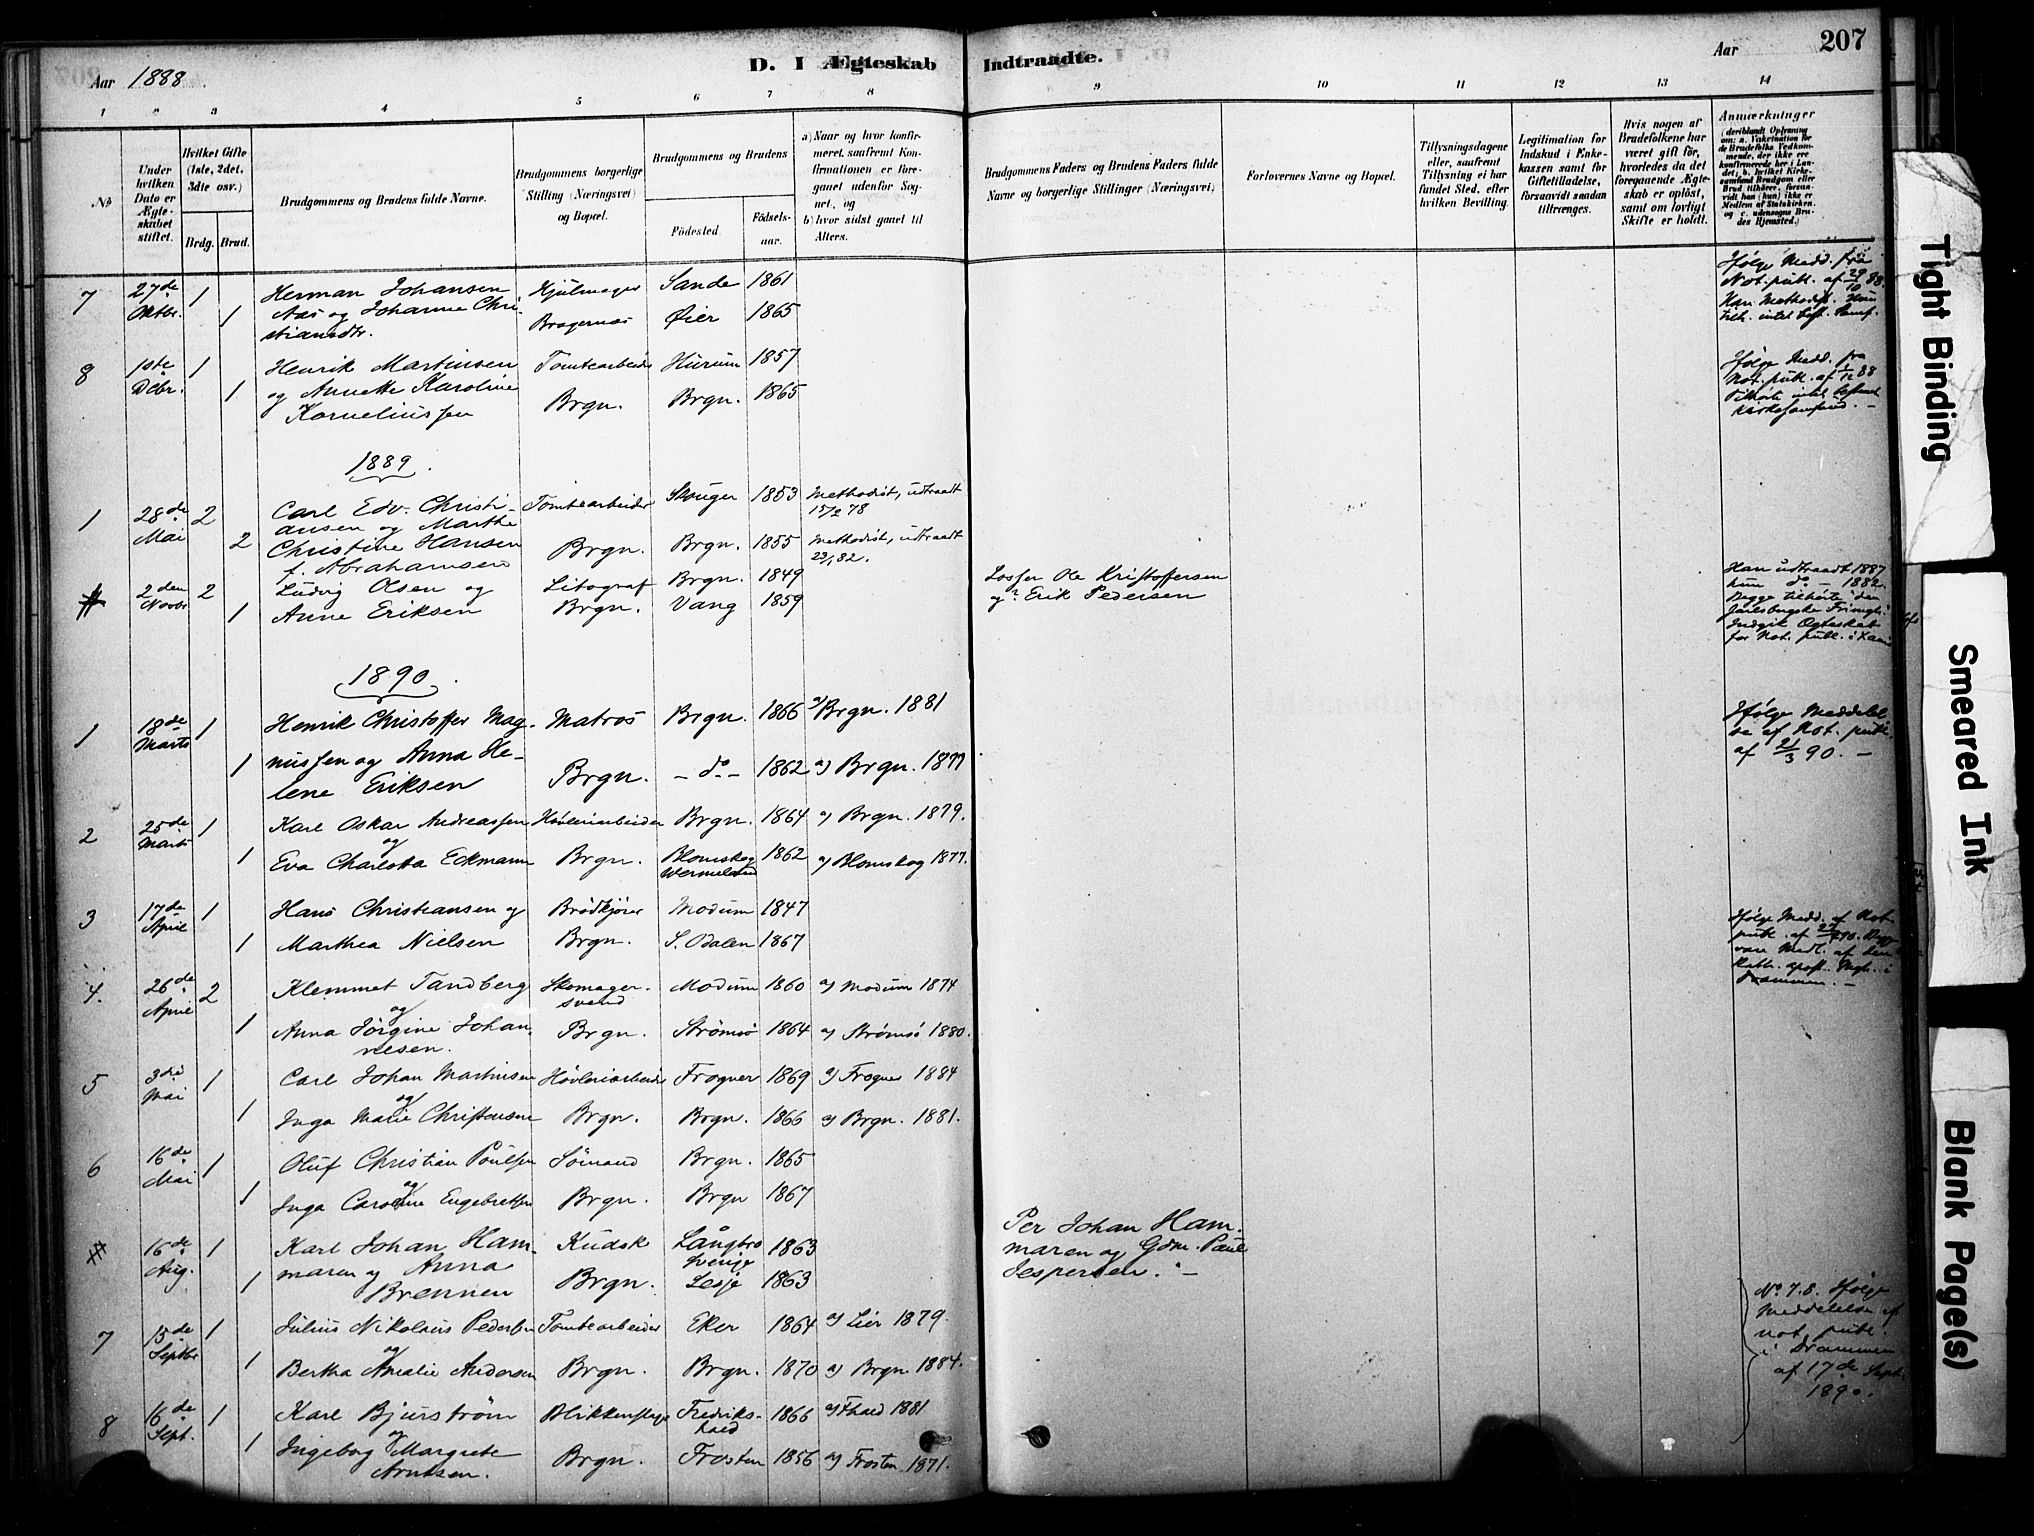 Aar 1888.
D. I Ægteskab
Indtraadte.
Aar
207
1 2 3 4 5 6 7 8 9 10 11 12 13 14
No
Under hvilken Dato er Ægteskabet stiftet.
Hvilket Gifte (1ste, 2det, 3die osv.)
Brdg. Brud.
Brudgommens og Brudens fulde Navne.
Brudgommens borgerlige Stilling (Næringsvei) og Bopæl.
Brudgommens og Brudens
Födested.
Födselsaar.
a) Naar og hvor konfirmeret, saafremt Konfirmationen er foregaaet udenfor Sognet, og
b) hvor sidst gaaet til Alters.
Brudgommens Faders og Brudens Faders fulde Navne og borgerlige Stillinger (Næringsvei)
Forlovernes Navne og Bopæl.
Tillysningsdagene eller, saafremt Tillysning ei har fundet Sted, efter hvilken Bevilling.
Legitimation for Indskud i Enkekassen samt for Giftetilladelse, forsaavidt saadan tiltrænges.
Hvis nogen af Brudefolkene har været gift för, hvorledes da det foregaaende Ægteskab er oplöst, samt om lovligt Skifte er holdt.
Anmærkninger (deriblandt Oplysning om: a. Vakcination for de Brudefolks Vedkommende, der ikke ere konfirmerede her i Landet; b. hvilket Kirkesamfund Brudgom eller Brud tilhörer, forsaavidt han (hun) ikke er Medlem af Statskirken, og c. udensogns Brudes Hjemsted.)
7 27de Oktbr. 1 Herman Johansen Hjulmager Sande 1861
1 Aas og Johanne Christiansdtr. Bragernæs Øier 1865
Ifølge Medd. fra Not. publ. af 29/10 88. Han Methodist. Hun tilh. intet best. Samf.
8 1ste Debr. 1 Henrik Martinsen Tomtearbeider Hurum 1857
1 og Annette Karoline Korneliussen Brgn. Brgn. 1865
Ifølge Medd. fra Not. publ. af 1/12 88 Tilhörte intet bestemt Kirkesamfund. –
1889.
1 28de Mai 2 Carl Edv. Christiansen og Marthe Tomtearbeider Skouger 1853 Methodist, udtraadt 15/2 78
2 Christine Hansen f. Abrahamsen Brgn. Brgn. 1855 Methodist, udtraadt 23/1 82.
# 2den Novbr 2 Ludvig Olsen og Litograf Brgn. 1849 Losser Ole Kristoffersen
1 Anne Eriksen Brgn. Vang 1859 og Erik Pedersen
Han udtraadt 1887 hun do – 1882. Begge tilhörte den Jarlsbergske Frimgh. Indgik Ægteskab for Not. publ. i
1890.
1 18de Marts 1 Henrik Christoffer Mag- Matros Brgn. 1866 a) Brgn. 1881
1 nussen og Anna Helene Eriksen Brgn. – do – 1862 a) Brgn. 1877
Ifølge Meddelelse af Not. publ. af 21/3 90. –
2 25de Marts 1 Karl Oskar Andreassen Høvleriarbeider Brgn. 1864 a) Brgn. 1879.
og
1 Eva Charlotta Eckmann Brgn. Blomskog Wermeland 1862 a) Blomskog 1877.
3 17de April 1 Hans Christiansen og Brödkjörer Modum 1847
1 Marthea Nielsen Brgn. S. Odalen 1867
Ifølge Medd. af Not. publ. af 90. Begge vare Medl. af den kath. apost. Mgh. i Drammen. –
4. 26de April 2 Klemmet Tandberg Skomagersvend Modum 1860 a) Modum 1874
og
1 Anna Jörgine Johannesen. Brgn. Strømsö 1864 a) Strømsö 1880.
5 3die Mai 1 Carl Johan Martinsen Høvleriarbeider Frogner 1869 a) Frogner 1884
og
1 Inga Marie Christensen Brgn. Brgn. 1866 a) Brgn. 1881.
6 16de Mai 1 Oluf Christian Poulsen Sömand Brgn. 1865
og
1 Inga Caroline Engebretsen Brgn. Brgn 1867
# 16de Aug. 1 Karl Johan Ham- Kudsk Långbro Sverige 1863 Per Johan Ham-
1 maren og Anna Brennen Brgn. Lesje 1863 maren og Gdm. Paul Jespersen. –
7 15de Septbr 1 Julius Nikolaus Pedersen Tomtearbeider Eker 1864 a) Lier 1879.
og
1 Bertha Amalie Andersen Brgn. Brgn. 1870 a) Brgn. 1884.
No 7.8. Ifølge Meddelelse af Not. publ. i Drammen af 17de Sept. 1890.
8 16de Sept. 1 Karl Bjurström Blikkenslager Fredrikshald 1866 a) Fhald 1881
og
1 Ingeborg Margrete Arntsen. Brgn. Frosten 1856 a) Frosten 1871.
Tight Binding
Smeared Ink
Blank Page(s)